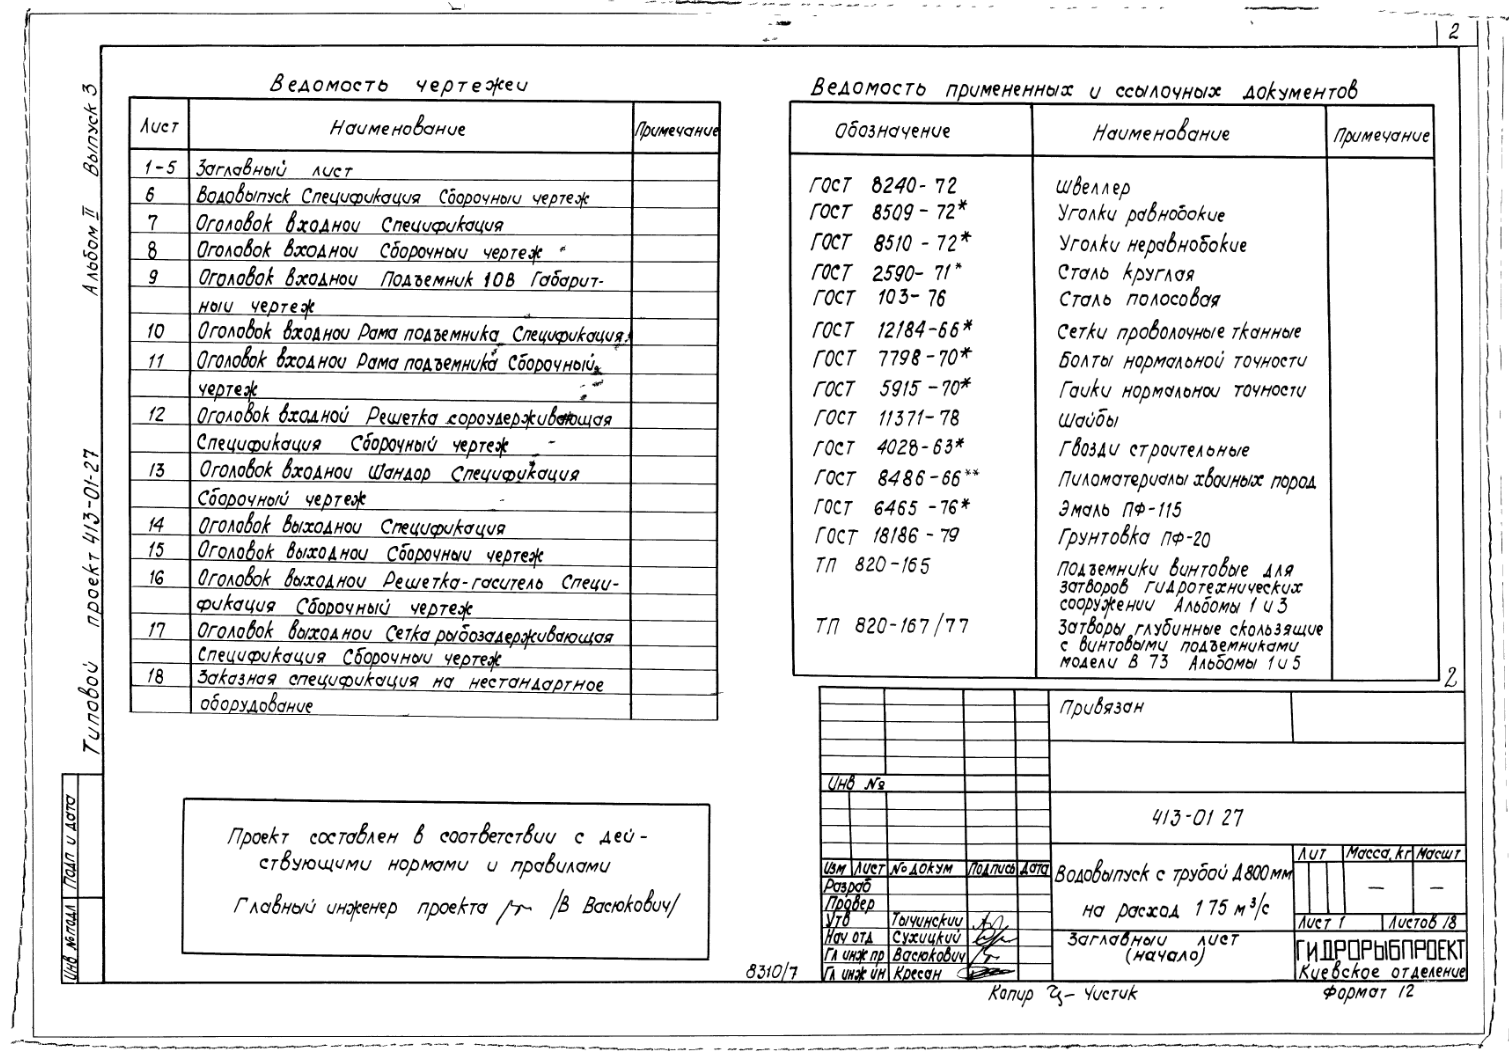 2
Альбом II Выпуск 3
Типовой проект 413-01-27
Инв № подл
Подп и дата
Ведомость чертежей
Лист Наименование Примечание
1-5 Заглавный лист
6 Водовыпуск Спецификация Сборочный чертеж
7 Оголовок входной Спецификация
8 Оголовок входной Сборочный чертеж
9 Оголовок входной Подъемник 10В Габарит-
ный чертеж
10 Оголовок входной Рама подъемника Спецификация
11 Оголовок входной Рама подъемника Сборочный
чертеж
12 Оголовок входной Решетка сороудерживающая
Спецификация Сборочный чертеж
13 Оголовок входной Шандор Спецификация
Сборочный чертеж
14 Оголовок выходной Спецификация
15 Оголовок выходной Сборочный чертеж
16 Оголовок выходной Решетка-гаситель Специ-
фикация Сборочный чертеж
17 Оголовок выходной Сетка рыбозадерживающая
Спецификация Сборочный чертеж
18 Заказная спецификация на нестандартное
оборудование
Проект составлен в соответствии с дей-
ствующими нормами и правилами
Главный инженер проекта /В Васюкович/
Ведомость примененных и ссылочных документов
Обозначение Наименование Примечание
ГОСТ 8240-72 Швеллер
ГОСТ 8509-72* Уголки равнобокие
ГОСТ 8510-72* Уголки неравнобокие
ГОСТ 2590-71* Сталь круглая
ГОСТ 103-76 Сталь полосовая
ГОСТ 12184-66* Сетки проволочные тканные
ГОСТ 7798-70* Болты нормальной точности
ГОСТ 5915-70* Гайки нормальной точности
ГОСТ 11371-78 Шайбы
ГОСТ 4028-63* Гвозди строительные
ГОСТ 8486-66** Пиломатериалы хвойных пород
ГОСТ 6465-76* Эмаль ПФ-115
ГОСТ 18186-79 Грунтовка ПФ-20
ТП 820-165 Подъемники винтовые для
затворов гидротехнических
сооружений Альбомы 1 и 3
ТП 820-167/77 Затворы глубинные скользящие
с винтовыми подъемниками
модели В 73 Альбомы 1 и 5
2
Привязан
Инв №
413-01 27
Изм Лист № докум Подпись Дата
Разраб
Провер
Утв Тычинский
Нач отд Сухицкий
Гл инж пр Васюкович
Гл инж ин Кресан
Водовыпуск с трубой Д 800 мм
на расход 1 75 м³/с
Заглавный лист
(начало)
Лит Масса, кг Масшт
— —
Лист 1 Листов 18
ГИДРОРЫБПРОЕКТ
Киевское отделение
8310/7
Копир Чистик
Формат 12